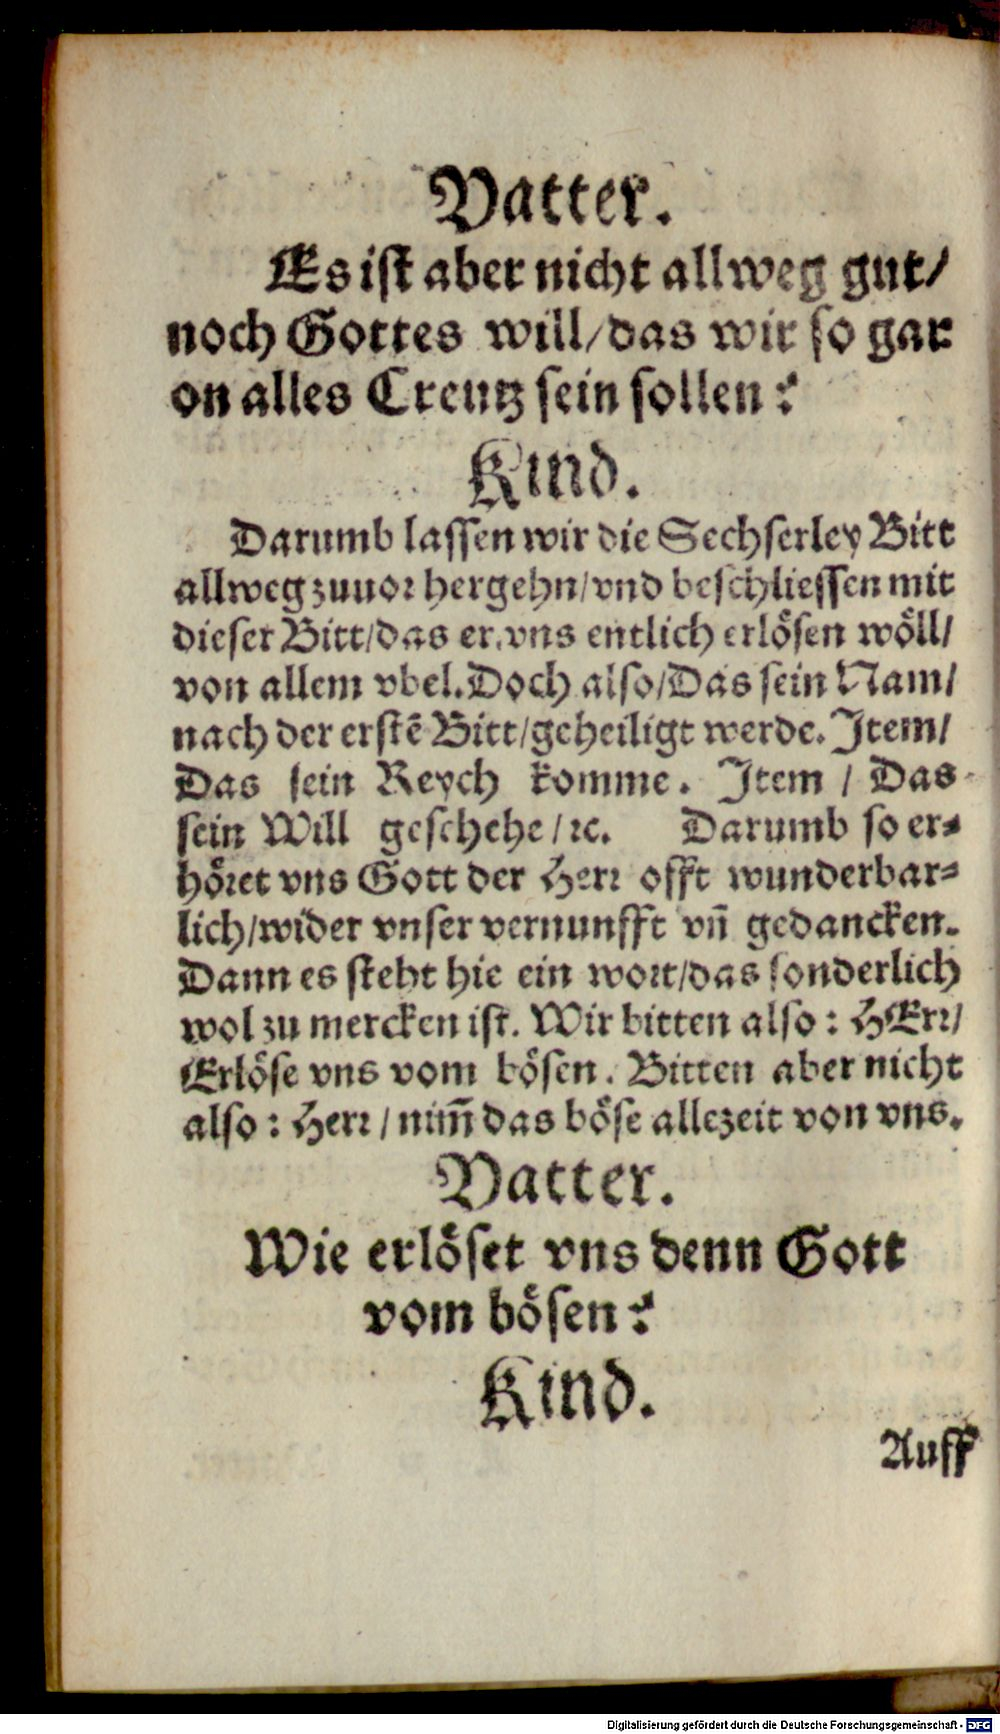 Vatter.
Es ist aber nicht allweg gut/
noch Gottes will/das wir so gar
on alles Creutz sein sollen?
Kind.
Darumb lassen wir die Sechserley Bitt
allweg zuuor hergehn/vnd beschliessen mit
dieser Bitt/das er vns entlich erlösen wöll/
von allem vbel. Doch also/Das sein Nam/
nach der erstē Bitt/geheiligt werde. Item/
Das sein Reych komme. Item / Das
sein Will geschehe/ꝛc. Darumb so er-
höret vns Gott der Herr offt wunderbar-
lich/wider vnser vernunfft vn̄ gedancken.
Dann es steht hie ein wort/das sonderlich
wol zu mercken ist. Wir bitten also: HErr/
Erlöse vns vom bösen. Bitten aber nicht
also: Herr / nim̄ das böse allezeit von vns.
Vatter.
Wie erlöset vns denn Gott
vom bösen?
Kind.
Auff
Digitalisierung gefördert durch die Deutsche Forschungsgemeinschaft - DFG